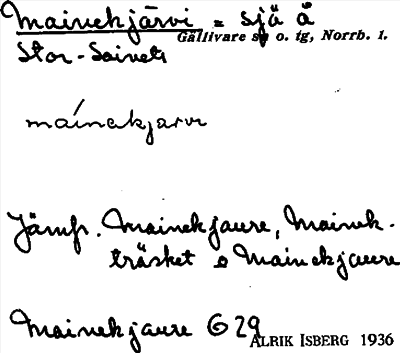 Mainekjärvi = sjö å
Gällivare sn o. tg, Norrb. l.
Stor-Saivets
máinekjarvi
Jämfr. Mainekjaure, Mainek-
träsket o Mainekjaure
Mainekjaure G 29
ALRIK ISBERG 1936